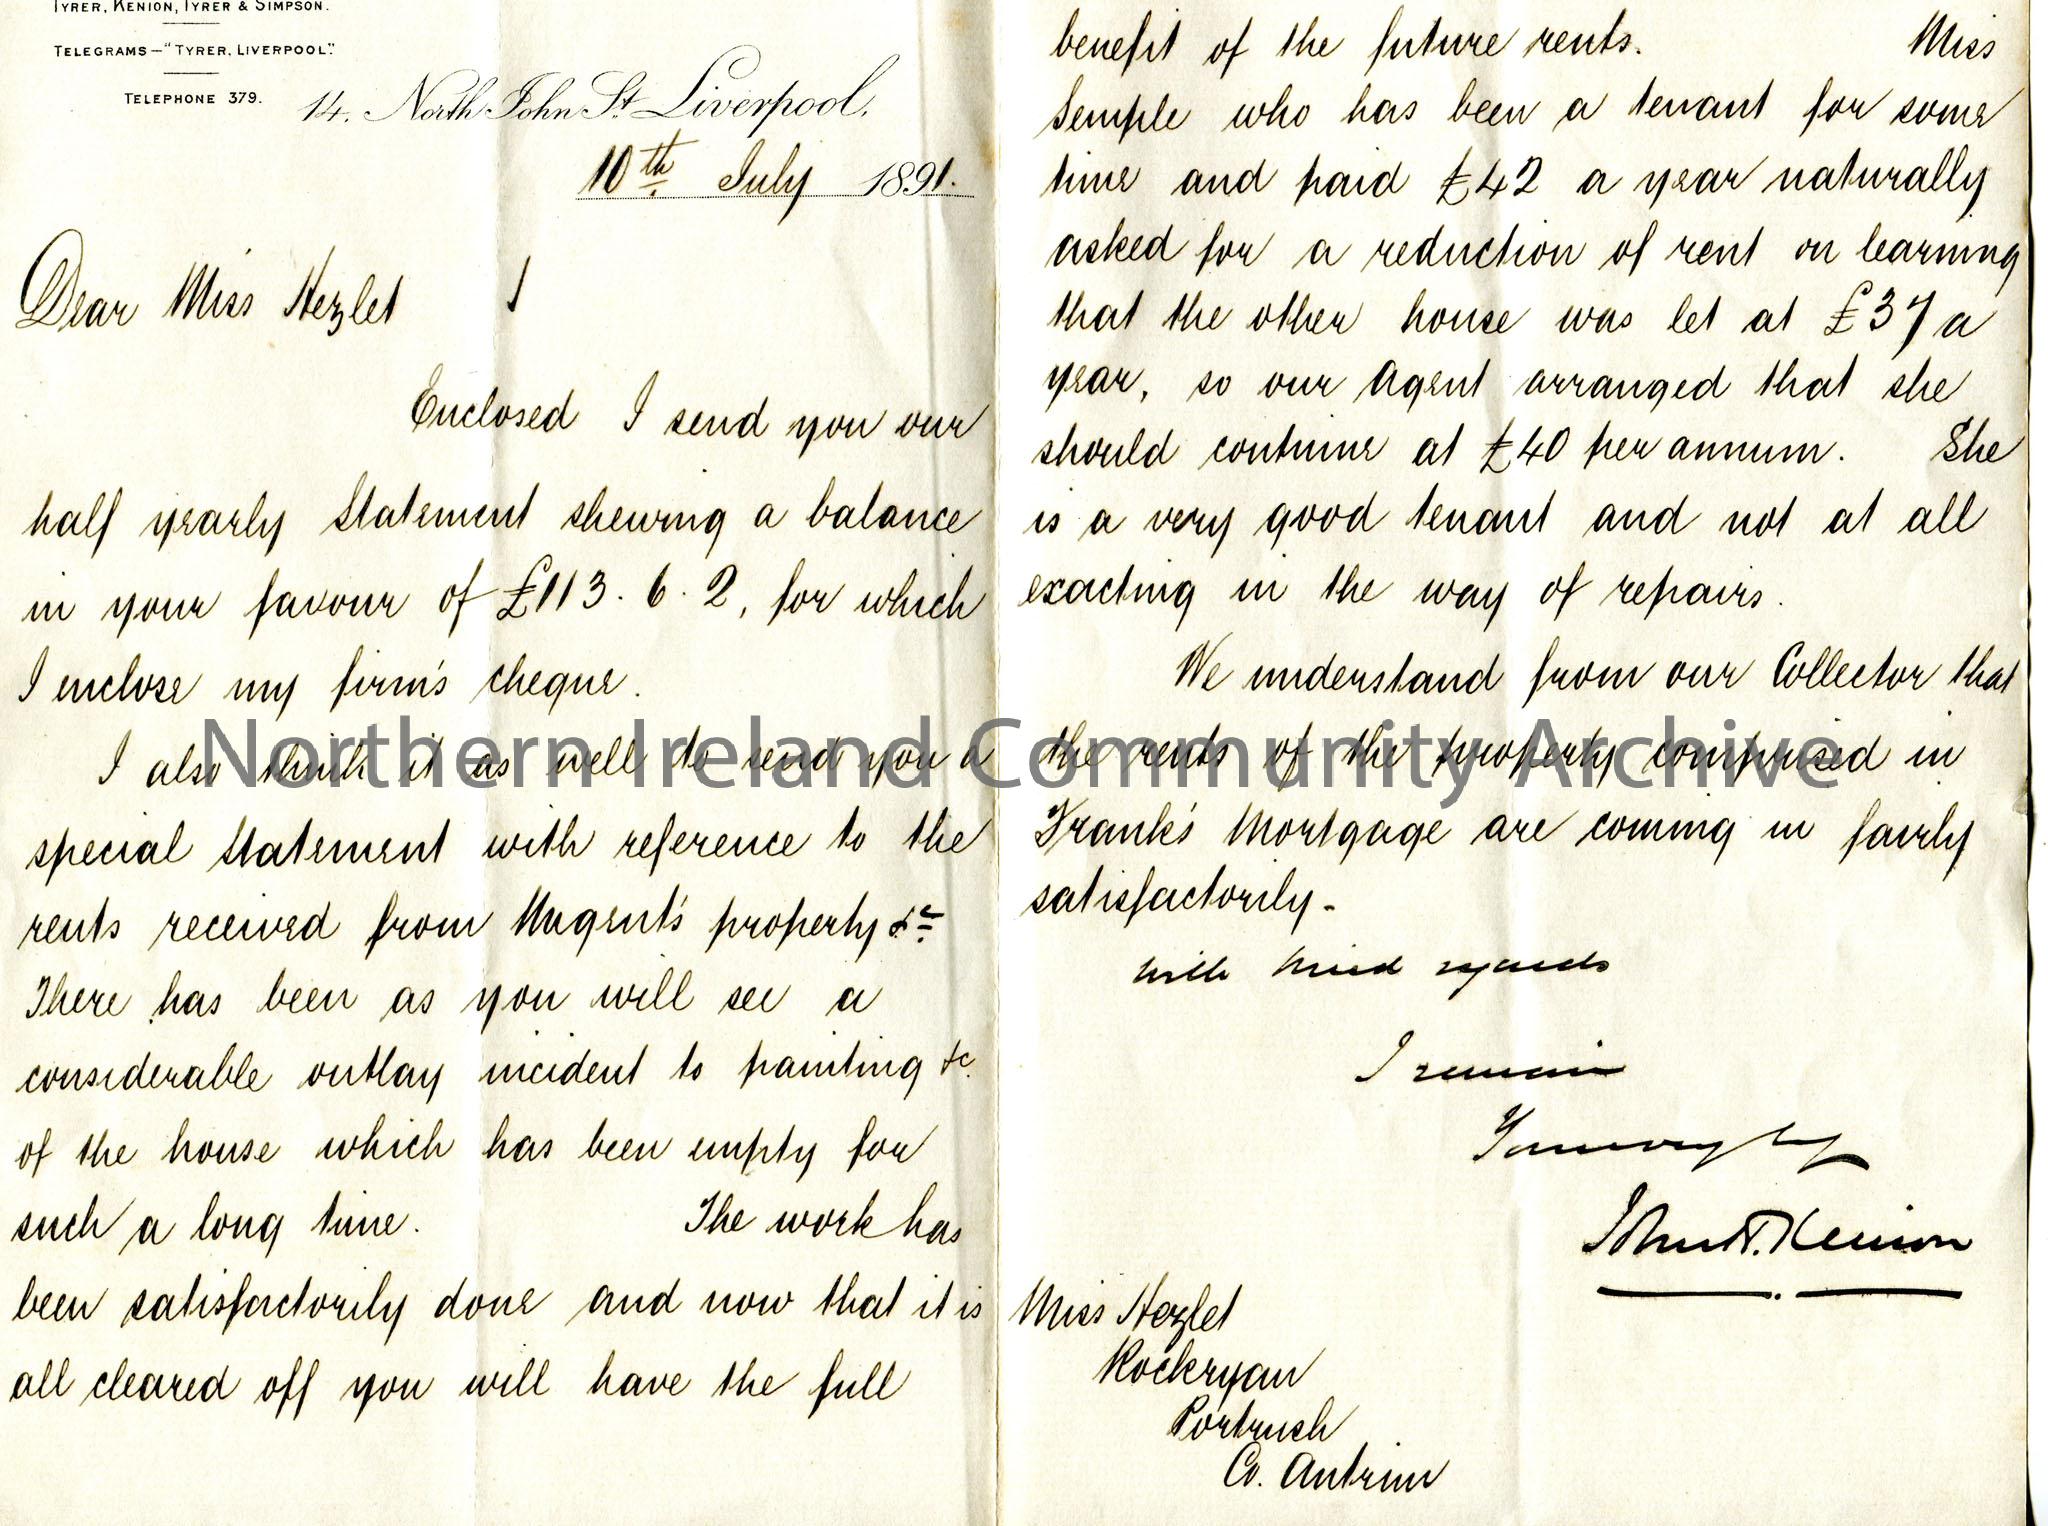 TYRER, KENION, TYRER & SIMPSON.
TELEGRAMS—"TYRER, LIVERPOOL".
TELEPHONE 379.
14, North John St. Liverpool,
10th July 1891.
Dear Miss Hezlet
Enclosed I send you our
half yearly Statement shewing a balance
in your favour of £113. 6. 2, for which
I enclose my firm's cheque.
I also think it as well to send you a
special Statement with reference to the
rents received from Nugent's property &c
There has been as you will see a
considerable outlay incident to painting &c.
of the house which has been empty for
such a long time. The work has
been satisfactorily done and now that it is
all cleared off you will have the full
benefit of the future rents. Miss
Semple who has been a tenant for some
time and paid £42 a year naturally
asked for a reduction of rent on learning
that the other house was let at £37 a
year, so our Agent arranged that she
should continue at £40 per annum. She
is a very good tenant and not at all
exacting in the way of repairs.
We understand from our Collector that
the rents of the property comprised in
Frank's Mortgage are coming in fairly
satisfactorily.
With kind regards
I remain
Yours very truly
John T. Kenion
Miss Hezlet
Rockryan
Portrush
Co. Antrim
Northern Ireland Community Archive